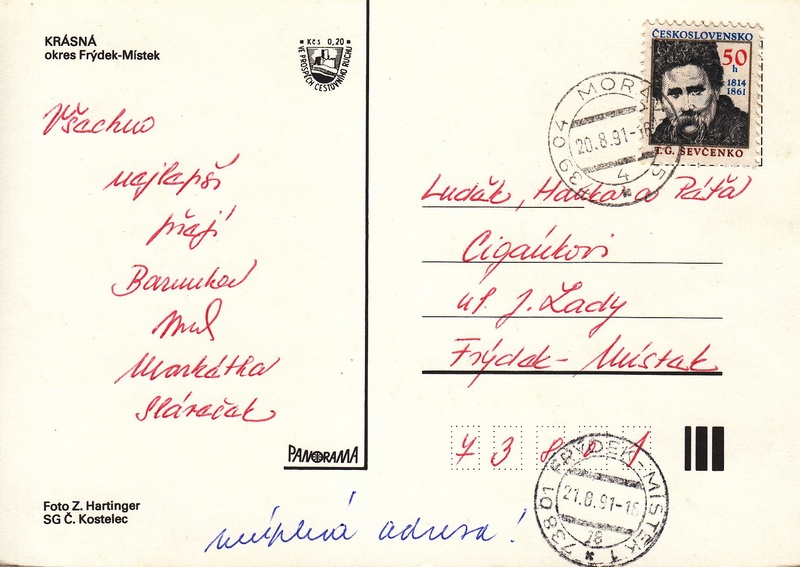 KRÁSNÁ
okres Frýdek-Místek
Kčs 0,20
VE PROSPĚCH CESTOVNÍHO RUCHU
ČESKOSLOVENSKO
50
h
1814
1861
T. G. ŠEVČENKO
739 04 MORAV
20.8.91-16
4
Všechno
nejlepší
přejí
Markétka
Luděk, Hanka a Péťa
Cigánkovi
ul. J. Lady
Frýdek-Místek
738 01
PANORAMA
Foto Z. Hartinger
SG Č. Kostelec
738 01 FRÝDEK-MÍSTEK 1
21.8.91-16
neúplná adresa!